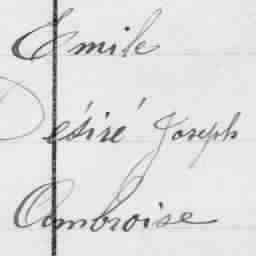 Emile
Désiré Joseph
Ambroise